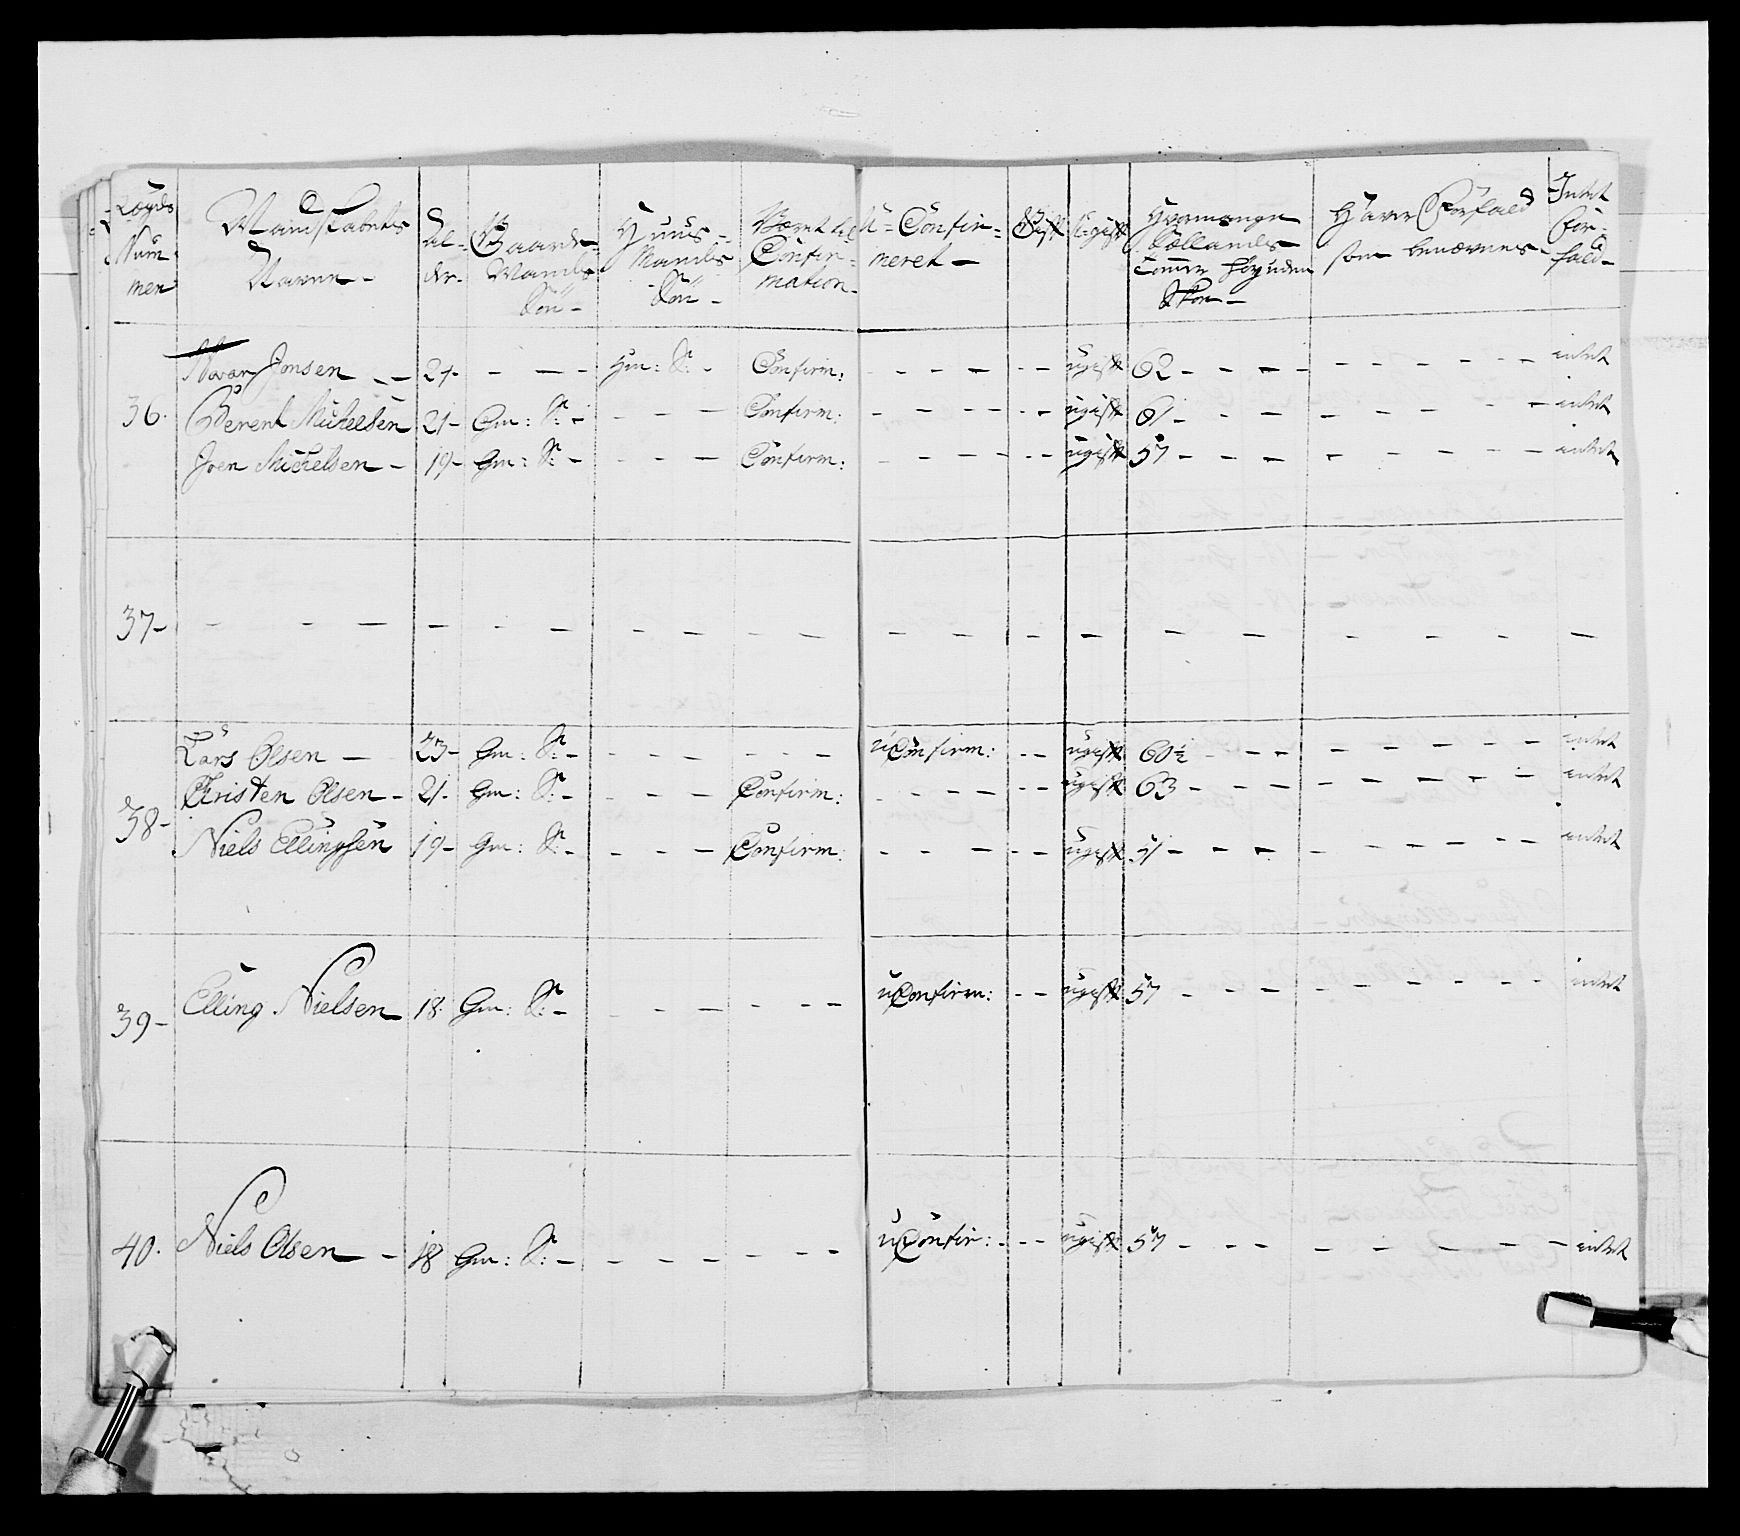 Lægds Num men
Mandskabets Navne -
Al- der-
Gaard- Mands Søn -
Huus- Mands Søn -
Været til Confir- mation -
U- Confir- meret -
Gift
Ugift
Hvormange Sællands Tommer Høy uden Skoe -
Haver Forfald som benævnes -
Intet For- fald -
Jonsen - - 24 - - - Hm: S: - Confirm: - - - - - ugift 62 - - - - - - - - - intet
36. Berent Michelsen 21 - Gm: S: - - - - Confirm: - - - - - ugift 61 - - - - - - - - intet
Joen Michelsen - 19 - Gm: S: - - - - Confirm: - - - - - ugift 57 - - - - - - - - intet
37 - - - - - - - - - - - - - - - - - - - - - -
Lars Olsen - 23 - Gm: S: - - - - - - - uConfirm: - - ugift 60½ - - - - - - - - intet
Christen Olsen - 21. Gm: S: - - - - Confirm: - - - - - - ugift 63 - - - - - - - - intet
38 -
Niels Ellingsen 19 - Gm: S: - - - - Confirm: - - - - - ugift 51 - - - - - - - - intet
39 - Elling Nielsen 18. Gm: S: - - - - - - - uConfirm: - - ugift 57 - - - - - - - - intet
40. Niels Olsen - - 18 Gm: S: - - - - - - - uConfir: - - - ugift 57 - - - - - - - - intet